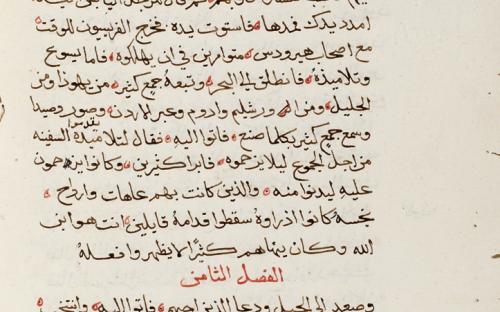 امدد يدك فمدها فاستوت يده فخرج الفريسيون للوقت
مع اصحاب هيرودس متوامرين في ان يهلكوه فاما يسوع
وتلاميذه فانطلق الى البحر وتبعه جمع كثير من يهوذا ومن
الجليل ومن اورشليم وادوم وعبر الاردن وصور وصيدا
وسمع جمع كثير بكلما صنع فاتوا اليه فقال لتلاميذه السفينه
من اجل الجموع ليلا يزحموه فابرا كثيرين وكانوا يزدحمون
عليه ليدنوا منه والذين كانت بهم عاهات وارواح
نجسة كانوا اذ راوه سقطوا قدامه قايلين انت هو ابن
الله وكان ينهاهم كثيرا لا يظهروا فعله
الفصل الثامن
وصعد الى الجبل ودعا الذين احبهم فاتوا اليه وانتخب